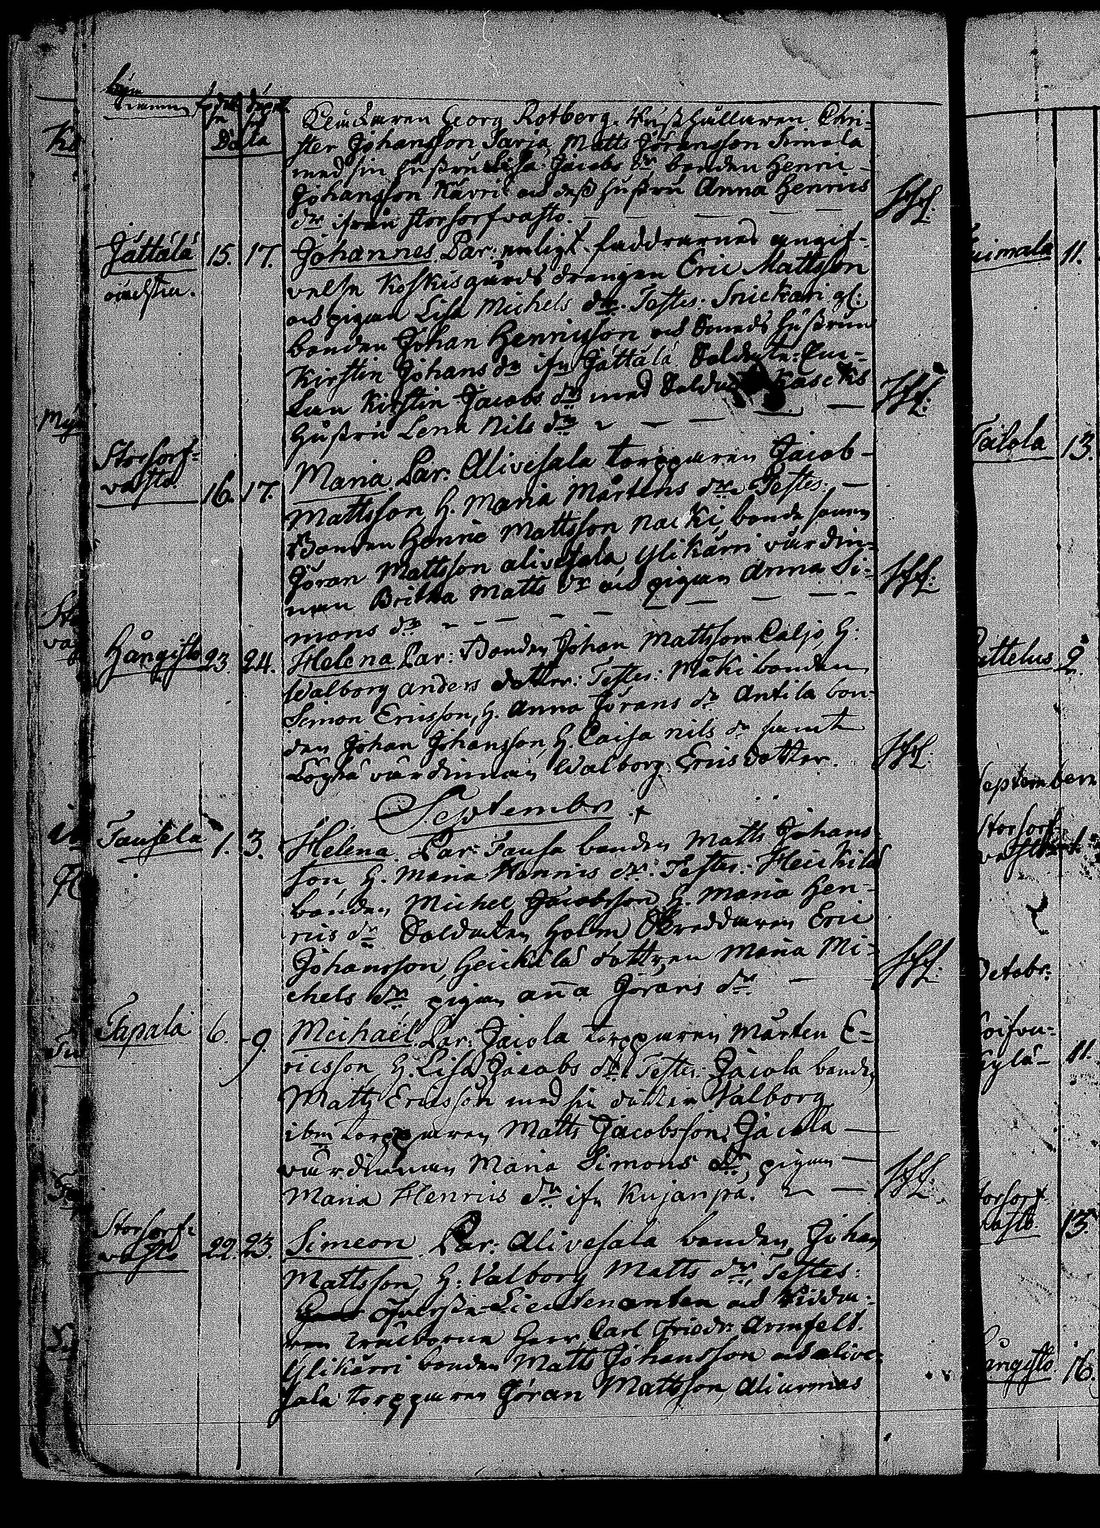 Byns namn födde döpte
Da la
Klockaren Georg Rotberg, Hushållaren Chri-
ster Johansson Tarja Matts Jöransson Simola
med sin hustru Lisa Jacobs dr bonden Henric
Johansson Kävri och dess hustru Anna Henrics
dr ifrån Storsorfvasto.
Jättälä 15. 17. Johannes. Par: enligt faddrarnes angif-
velse Koskisgårds drengen Eric Mattsson
och pigan Lisa Michels dr. Testes. Snickari gl:
bonden Johan Henricsson och Sonens hustrun
Kirstin Johans dr ifrn Jättälä Soldate: En-
kan Kirstin Jacobs dr med Soldat Kascks
hustru Lena Nils dr
Storsorf-
vasto 16. 17. Maria. Par: Alivesala torpparen Jacob
Mattsson H. Maria Mårtens dr Testes:
Bonden Henric Mattsson Nacki, bonde sonen
Jöran Mattsson alivesala Ylikärri värdin-
nan Britha Matts dr och pigan Anna Si-
mons dr
Hångisto 23. 24. Helena Par: Bonden Johan Mattsson Caljo H:
Walborg anders dotter: Testes: Mäki bonden
Simon Ericsson, H. Anna Jörans dr Antila bon-
den Johan Johansson, H. Caisa nils dr samt
värdinnan Walborg Ericsdotter.
Septembr.
Tausela 1. 3. Helena. Par: Tausa bonden Matts Johans-
son, H. Maria Hennis dr: Testes: Heickilä
bonden Michel Jacobsson H. Maria Hen-
rics dr Soldaten Holm Skreddaren Eric
Johansson, Heickilä dottren Maria Mi-
chels dr pigan Aña Jörans dr
Tapala 6. 9. Michaël. Par: Jaiola torpparen Mårten E-
ricsson H. Lisa Jacobs dr Testes: Jaiola bonden
Matts Ericsson med sin dotter Walborg
ibm torpparen Matts Jacobsson, Jaiola
värdinnan Maria Simons dr, pigan
Maria Henrics dr ifrn Kujanpä.
Storsorf-
vasto 22. 23. Simeon Par: Alivesala bonden Johan
Mattsson H: Valborg Matts dr, Testes:
Öfverste-Lieutenanten och Ridda-
ren Välborne Herr Carl Friedr. Armfelt.
Ylikärri bonden Matts Johansson och alive-
sala torpparen Jöran Mattsson, Aliurmas
uimala 11.
Talola 13.
attelus 9.
September
Storsorf
vasto
Octobr:
kylä 11.
torsorf
vasto 15.
ångisto 16.